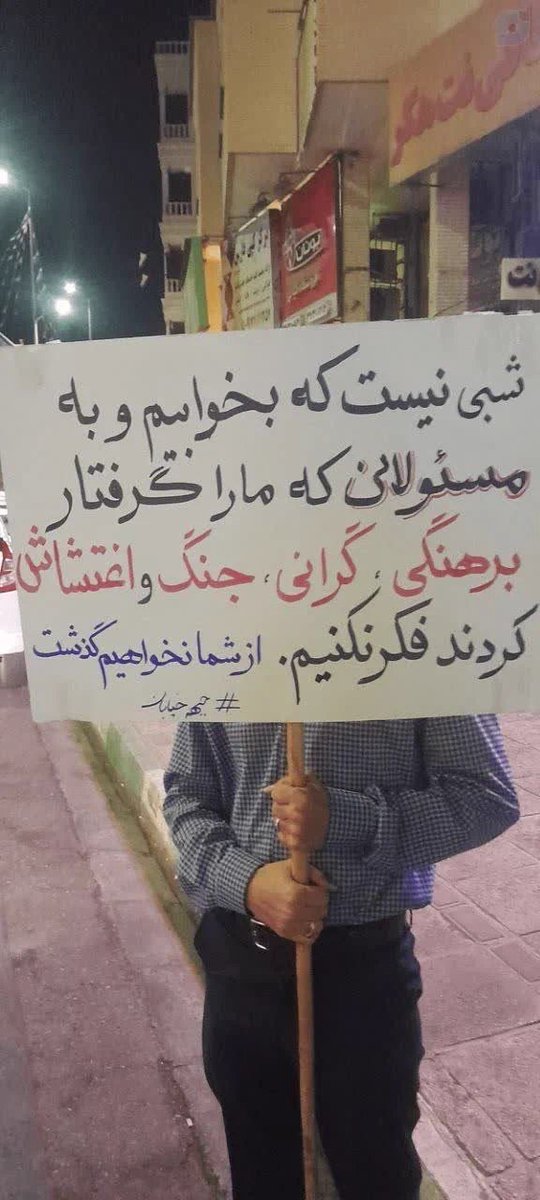 شبی نیست که بخوابیم و به
مسئولانی که ما را گرفتار
برهنگی، گرانی، جنگ و اغتشاش
کردند فکر نکنیم. از شما نخواهیم گذشت
#جبهه_خیابان
بوتان